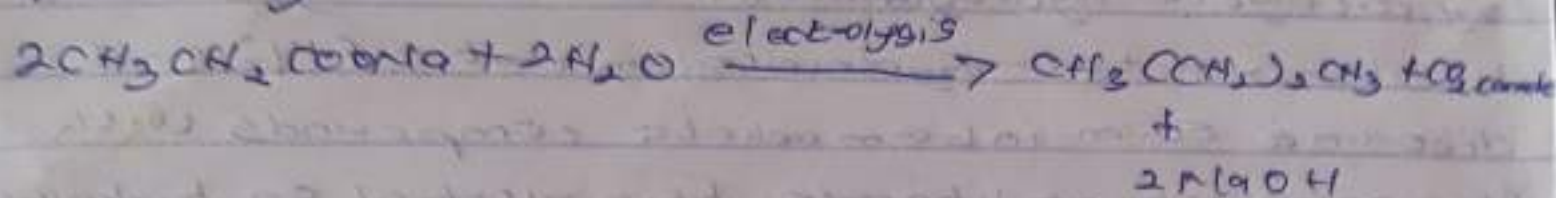 2CH₃CH₂COONa + 2H₂O electolysis → CH₃(CH₂)₂CH₃ + CO₂
+
2NaOH